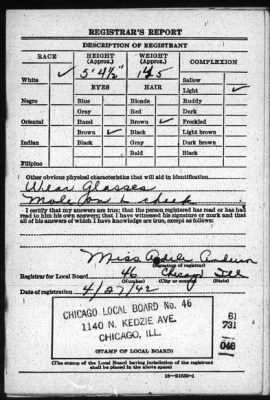 REGISTRAR'S REPORT
DESCRIPTION OF REGISTRANT
RACE
HEIGHT (Approx.)
WEIGHT (Approx.)
COMPLEXION
White ✓
5' 4½"
145
Sallow
Light ✓
EYES
HAIR
Negro
Blue
Blonde
Ruddy
Gray
Red
Dark
Oriental
Hazel
Brown ✓
Freckled
Brown ✓
Black
Light brown
Indian
Black
Gray
Dark brown
Bald
Black
Filipino
Other obvious physical characteristics that will aid in identification
Wear Glasses
Mole on L cheek
I certify that my answers are true; that the person registered has read or has had
read to him his own answers; that I have witnessed his signature or mark and that
all of his answers of which I have knowledge are true, except as follows:
Miss
(Signature of registrar)
Registrar for Local Board 46 Chicago Ill
(Number) (City or county) (State)
Date of registration 4/27/42
CHICAGO LOCAL BOARD No. 46
1140 N. KEDZIE AVE.
CHICAGO, ILL.
61
731
046
(STAMP OF LOCAL BOARD)
(The stamp of the Local Board having jurisdiction of the registrant
shall be placed in the above space)
16—21630-1